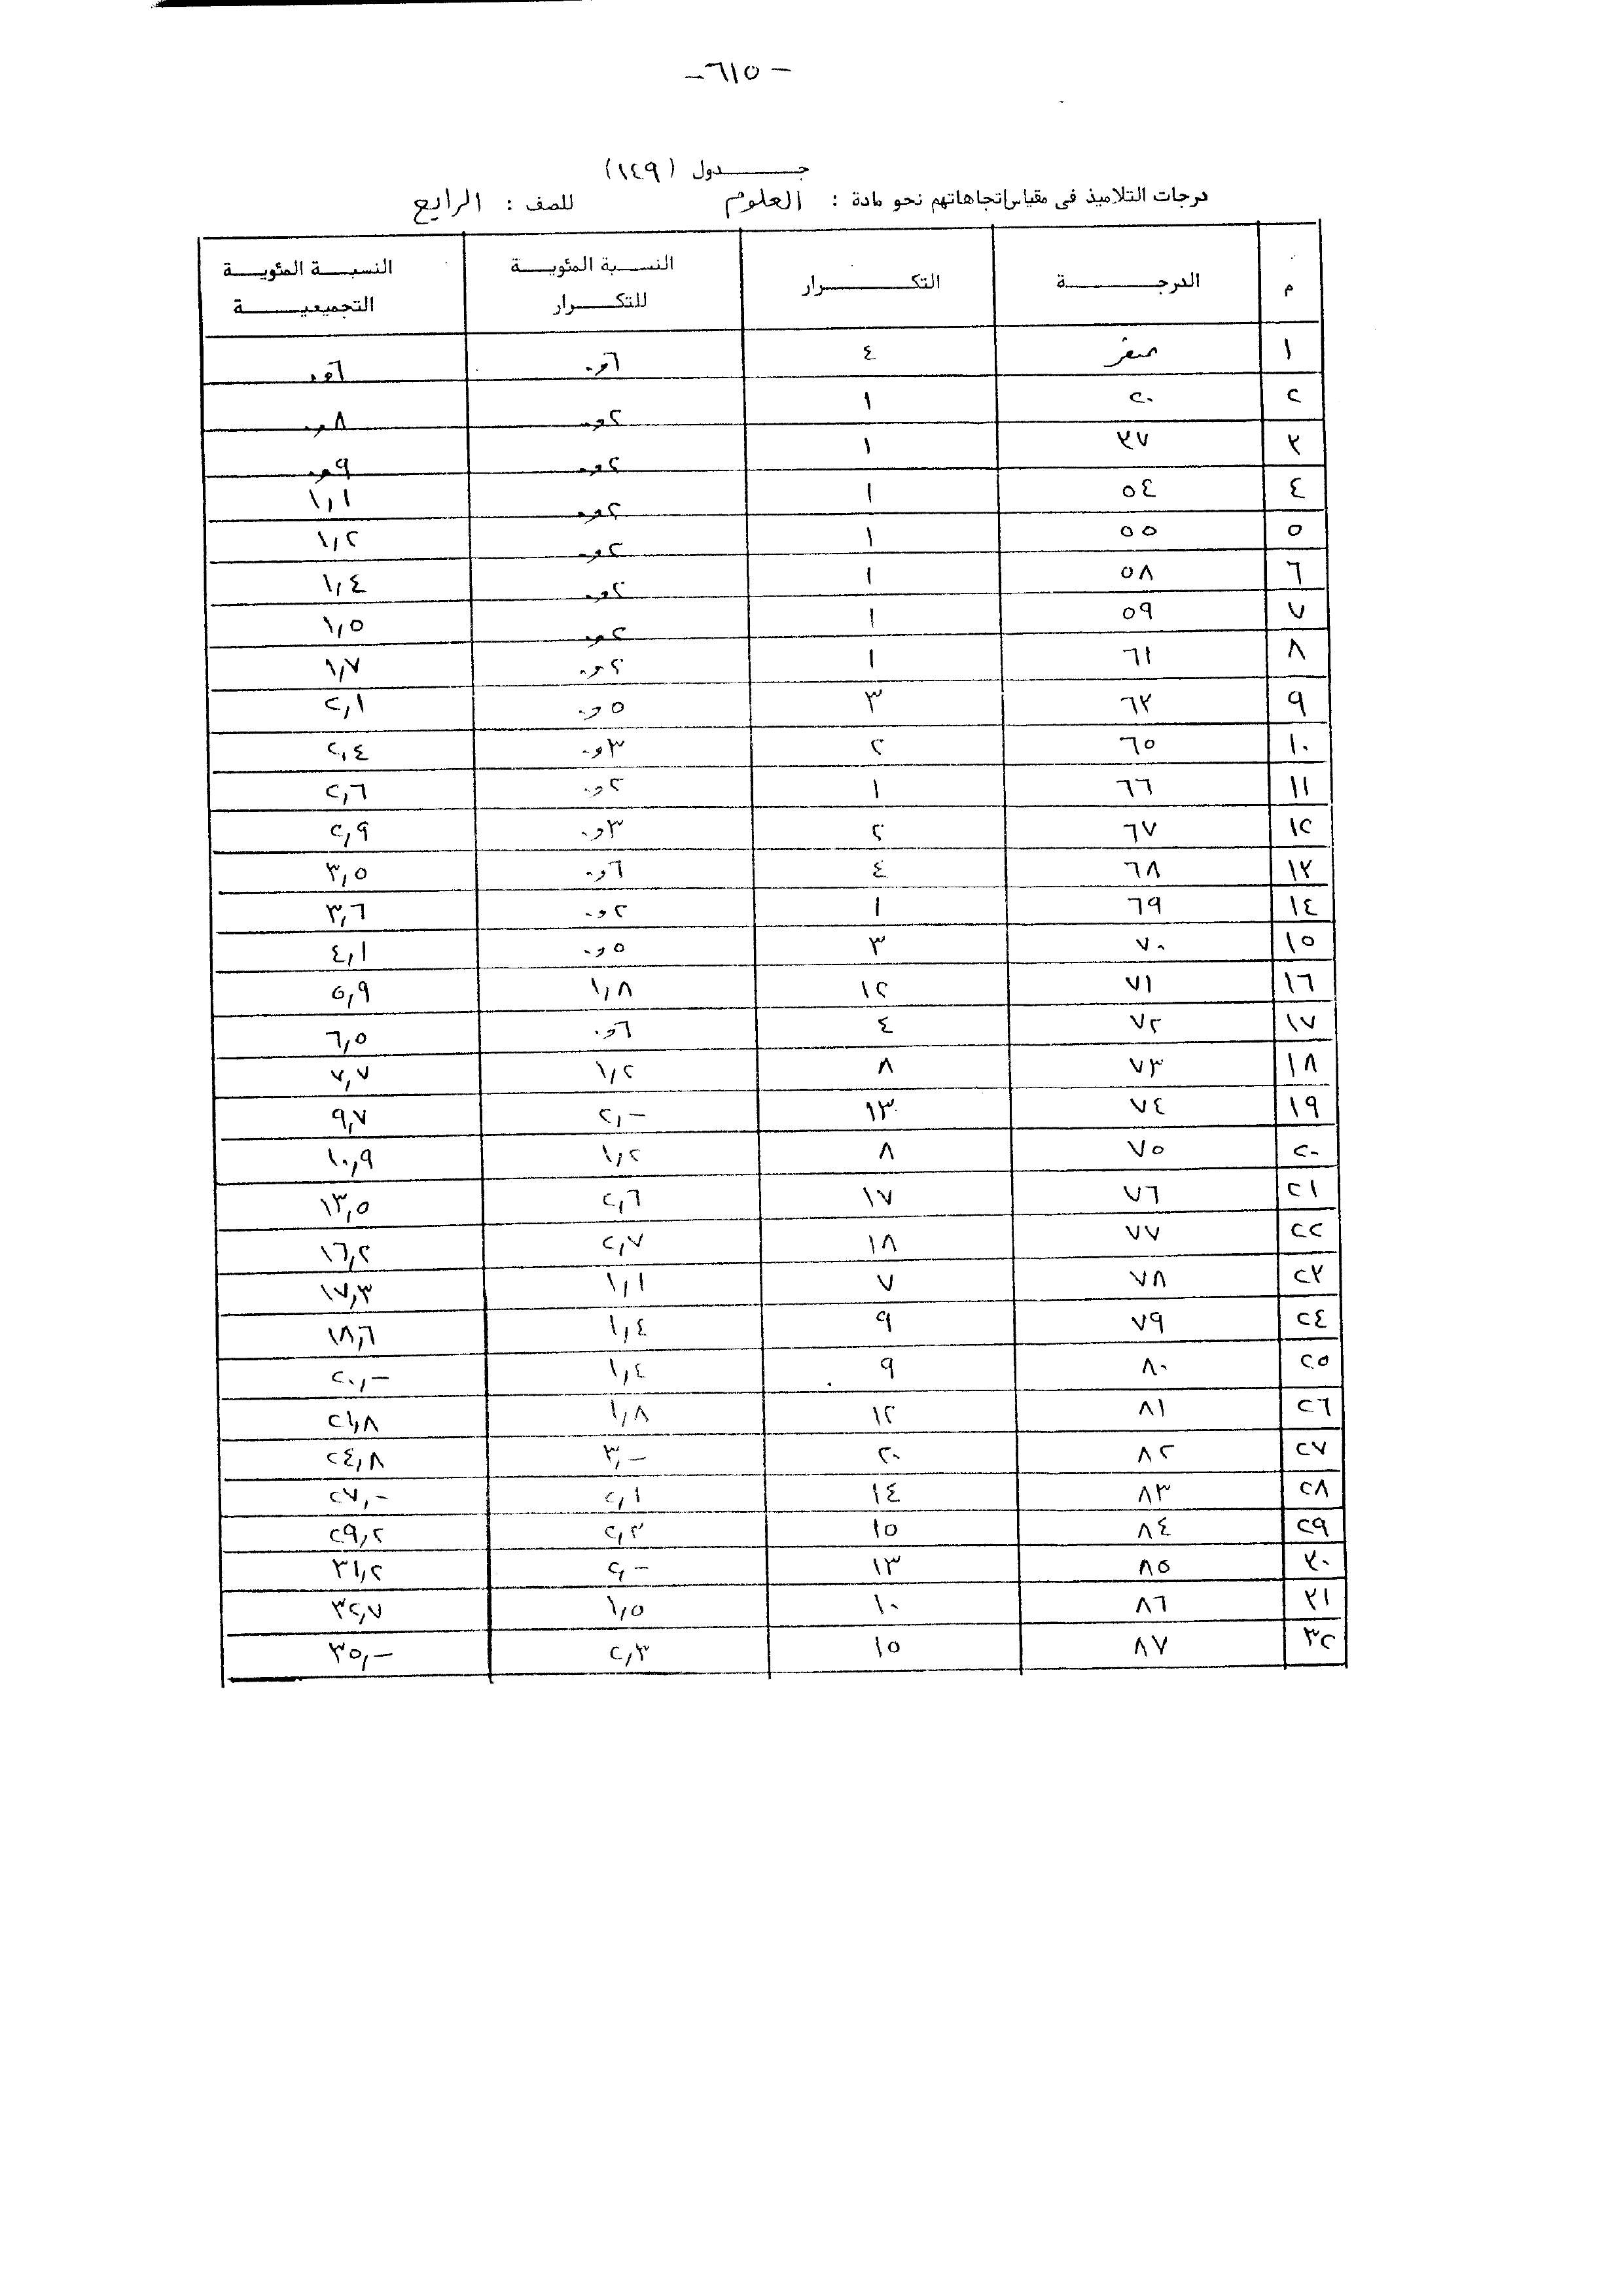 -٦١٥-
جدول (١٤٩)
درجات التلاميذ فى مقياس اتجاهاتهم نحو مادة : العلوم للصف : الرابع
م الدرجة التكرار النسبة المئوية للتكرار النسبة المئوية التجميعية
١ صفر ٤ ٦و٠ ٦و٠
٢ ٢٠ ١ ٢و٠ ٨و٠
٣ ٣٧ ١ ٢و٠ ٩و٠
٤ ٥٤ ١ ٢و٠ ١,١
٥ ٥٥ ١ ٢و٠ ١,٢
٦ ٥٨ ١ ٢و٠ ١,٤
٧ ٥٩ ١ ٢و٠ ١,٥
٨ ٦١ ١ ٢و٠ ١,٧
٩ ٦٣ ٣ ٥و٠ ٢,١
١٠ ٦٥ ٢ ٣و٠ ٢,٤
١١ ٦٦ ١ ٢و٠ ٢,٦
١٢ ٦٧ ٢ ٣و٠ ٢,٩
١٣ ٦٨ ٤ ٦و٠ ٣,٥
١٤ ٦٩ ١ ٢و٠ ٣,٦
١٥ ٧٠ ٣ ٥و٠ ٤,١
١٦ ٧١ ١٢ ١,٨ ٥,٩
١٧ ٧٢ ٤ ٦و٠ ٦,٥
١٨ ٧٣ ٨ ١,٢ ٧,٧
١٩ ٧٤ ١٣ ٢,- ٩,٧
٢٠ ٧٥ ٨ ١,٢ ١٠,٩
٢١ ٧٦ ١٧ ٢,٦ ١٣,٥
٢٢ ٧٧ ١٨ ٢,٧ ١٦,٢
٢٣ ٧٨ ٧ ١,١ ١٧,٣
٢٤ ٧٩ ٩ ١,٤ ١٨,٦
٢٥ ٨٠ ٩ ١,٤ ٢٠,-
٢٦ ٨١ ١٢ ١,٨ ٢١,٨
٢٧ ٨٢ ٢٠ ٣,- ٢٤,٨
٢٨ ٨٣ ١٤ ٢,١ ٢٧,-
٢٩ ٨٤ ١٥ ٢,٣ ٢٩,٢
٣٠ ٨٥ ١٣ ٢,- ٣١,٢
٣١ ٨٦ ١٠ ١,٥ ٣٢,٧
٣٢ ٨٧ ١٥ ٢,٣ ٣٥,-